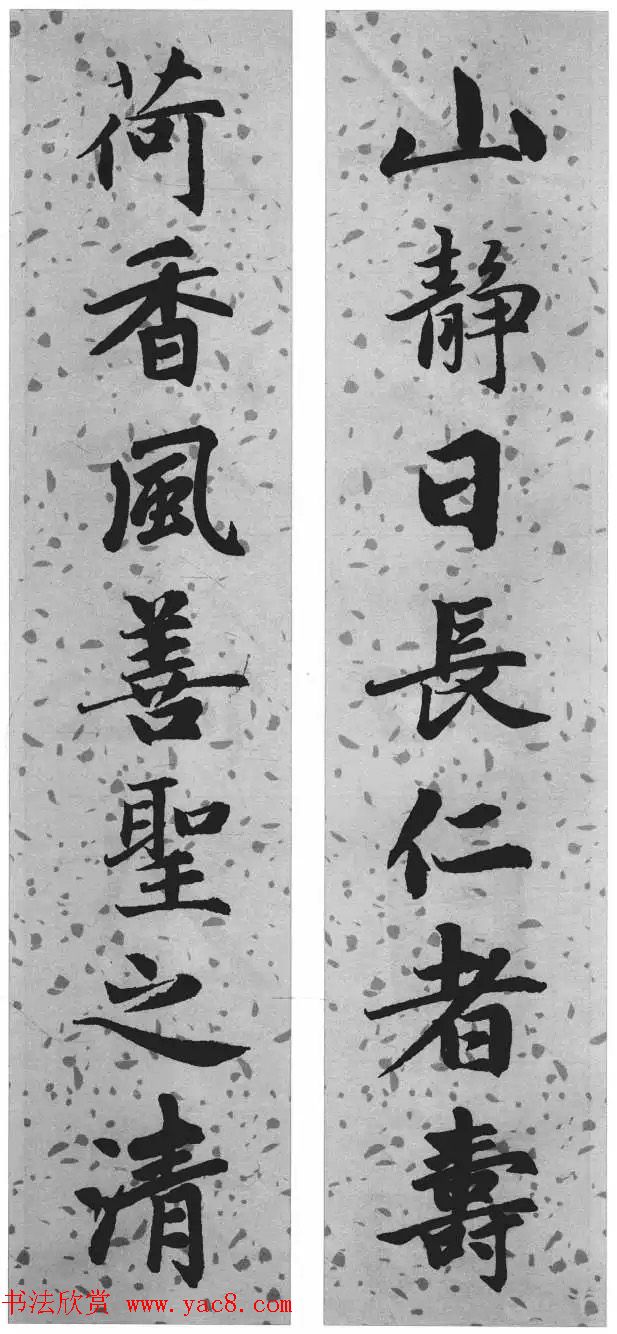 山静日長仁者壽
荷香風善聖之清
书法欣赏 www.yac8.com